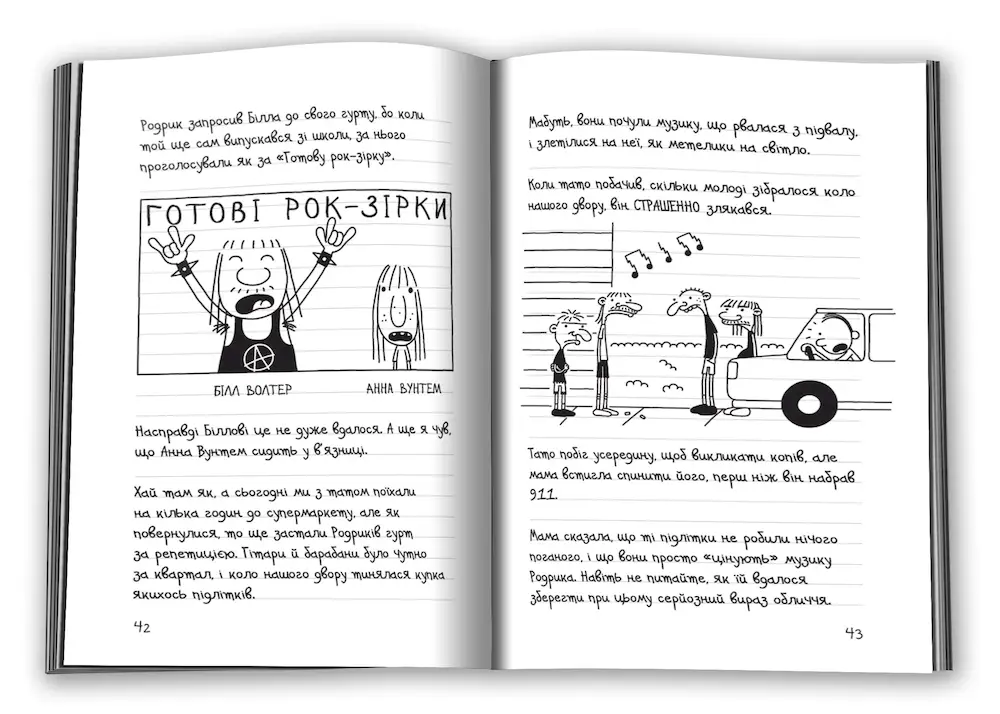 Родрик запросив Білла до свого гурту, бо коли
той ще сам випускався зі школи, за нього
проголосували як за «Готову рок-зірку».
ГОТОВІ РОК-ЗІРКИ
БІЛЛ ВОЛТЕР
АННА ВУНТЕМ
Насправді Біллові це не дуже вдалося. А ще я чув,
що Анна Вунтем сидить у в'язниці.
Хай там як, а сьогодні ми з татом поїхали
на кілька годин до супермаркету, але як
повернулися, то ще застали Родриків гурт
за репетицією. Гітари й барабани було чутно
за квартал, і коло нашого двору тинялася купка
якихось підлітків.
42
Мабуть, вони почули музику, що рвалася з підвалу,
і злетілися на неї, як метелики на світло.
Коли тато побачив, скільки молоді зібралося коло
нашого двору, він СТРАШЕННО злякався.
Тато побіг усередину, щоб викликати копів, але
мама встигла спинити його, перш ніж він набрав
911.
Мама сказала, що ті підлітки не робили нічого
поганого, і що вони просто «цінують» музику
Родрика. Навіть не питайте, як їй вдалося
зберегти при цьому серйозний вираз обличчя.
43